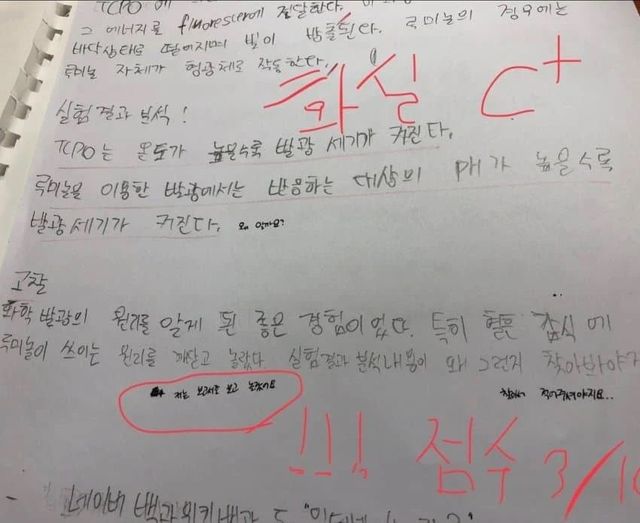 TCPO에
그 에너지를 fluorescer에 전달한다.
바닥상태로 떨어지며 빛이 방출된다. 루미놀의 경우에는
루미놀 자체가 형광체로 작동한다.
화실 C+
실험결과 분석!
TCPO는 온도가 높을수록 발광 세기가 커진다.
루미놀을 이용한 발광에서는 반응하는 대상의 pH가 높을수록
발광세기가 커진다. 왜 일까요?
고찰
화학발광의 원리를 알게 된 좋은 경험이었다. 특히 혈흔 감식에
루미놀이 쓰이는 원리를 깨닫고 놀랐다 실험결과 분석내용이 왜 그런지 찾아봐야
저는 보고서를 보고 놀랐어요
찾아서 적어주셔야지요...
!!! 점수 3/10
- 네이버 백과 위키백과